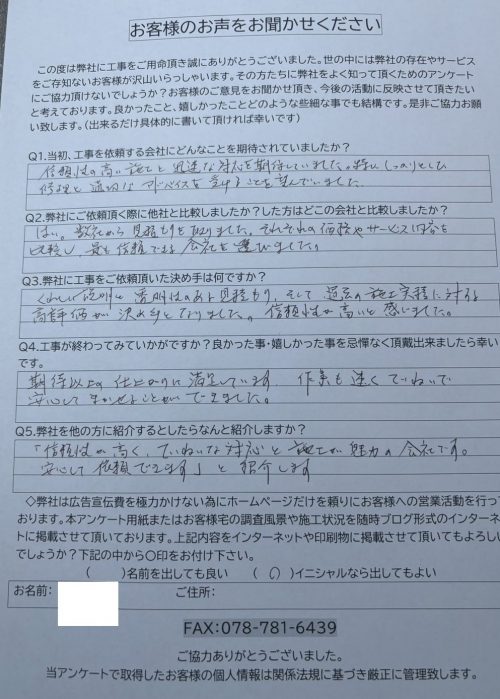 お客様のお声をお聞かせください
この度は弊社に工事をご用命頂き誠にありがとうございました。世の中には弊社の存在やサービス
をご存知ないお客様が沢山いらっしゃいます。その方たちに弊社をよく知って頂くためのアンケート
にご協力頂けないでしょうか？お客様のご意見をお聞かせ頂き、今後の活動に反映させて頂きたい
と考えております。良かったこと、嬉しかったことどのような些細な事でも結構です。是非ご協力お願
い致します。(出来るだけ具体的に書いて頂ければ幸いです)
Q1.当初、工事を依頼する会社にどんなことを期待されていましたか？
信頼性の高い施工と迅速な対応を期待していました。特にしっかりとした
修理と適切なアドバイスを受けることを望んでいました。
Q2.弊社にご依頼頂く際に他社と比較しましたか？した方はどこの会社と比較しましたか？
はい。数社から見積もりを取りました。それぞれの価格やサービス内容を
比較し、最も信頼できる会社を選びました。
Q3.弊社に工事をご依頼頂いた決め手は何ですか？
くわしい説明と透明性のある見積もり、そして過去の施工実績に対する
高評価が決め手となりました。信頼性が高いと感じました。
Q4.工事が終わってみていかがですか？良かった事・嬉しかった事を忌憚なく頂戴出来ましたら幸い
です。
期待以上の仕上がりに満足しています。作業も速くていねいで
安心してまかせることができました。
Q5.弊社を他の方に紹介するとしたらなんと紹介しますか？
「信頼性が高く、ていねいな対応と施工が魅力の会社です。
安心して依頼できます」と紹介します
◇弊社は広告宣伝費を極力かけない為にホームページだけを頼りにお客様への営業活動を行っ
ております。本アンケート用紙またはお客様宅の調査風景や施工状況を随時ブログ形式のインターネッ
トに掲載させて頂いております。上記内容をインターネットや印刷物に掲載させて頂いてもよろしい
でしょうか？下記の中から〇印をお付け下さい。
(　　)名前を出しても良い　(　〇)イニシャルなら出してもよい
お名前：　　ご住所：
FAX:078-781-6439
ご協力ありがとうございました。
当アンケートで取得したお客様の個人情報は関係法規に基づき厳正に管理致します。